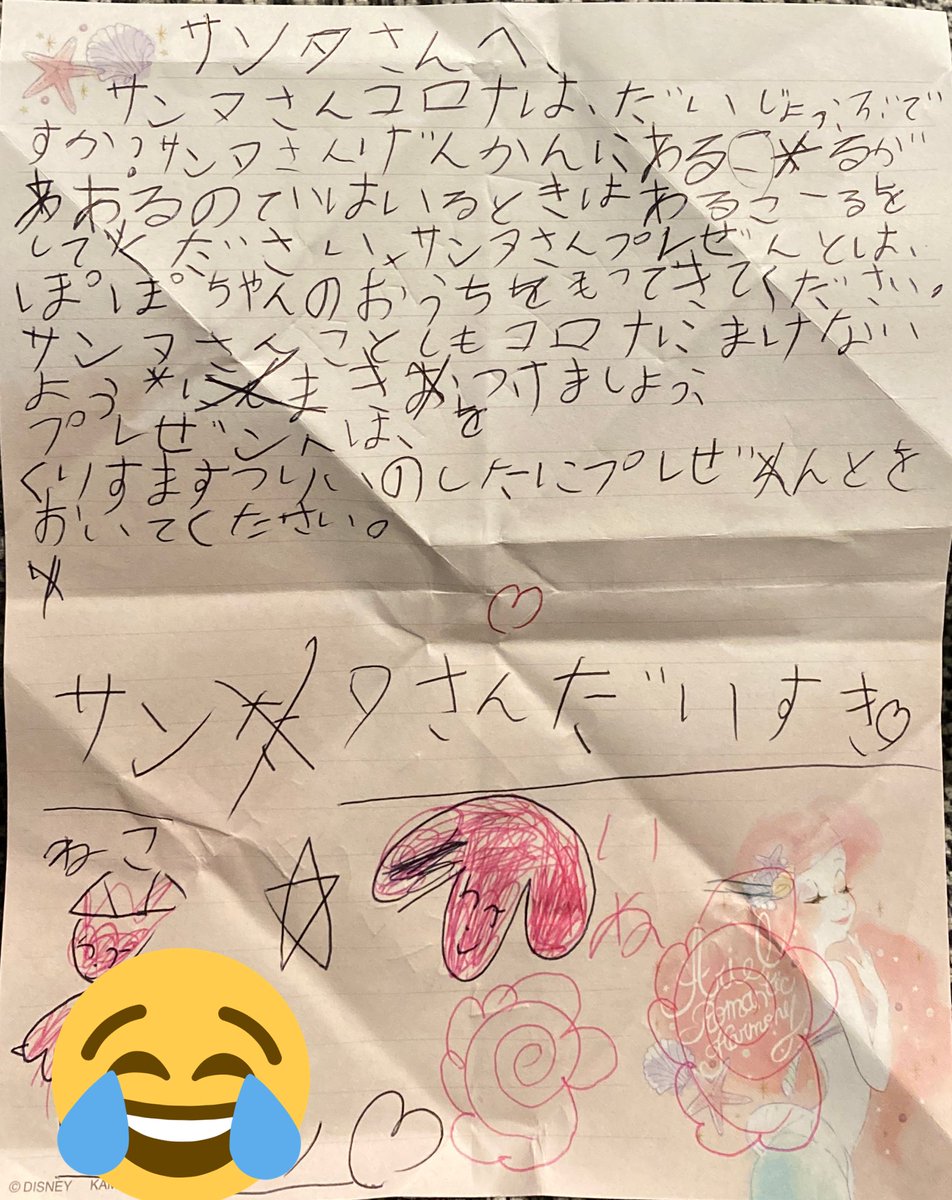 サンタさんへ、
サンタさんコロナは、だいじょうぶで
すか?サンタさんげんかんに、あるこーるが
あるのではいるときはあるこーるを
してください、サンタさんプレぜんとは、
ぽぽちゃんのおうちをもってきてください。
サンタさんことしもコロナに、まけない
ように きをつけましょう、
プレゼントは、
くりすますつりいのしたにプレぜんとを
おいてください。
サンタさんだいすき
ねこ
いぬ
Ariel
Romantic
Harmony
©DISNEY